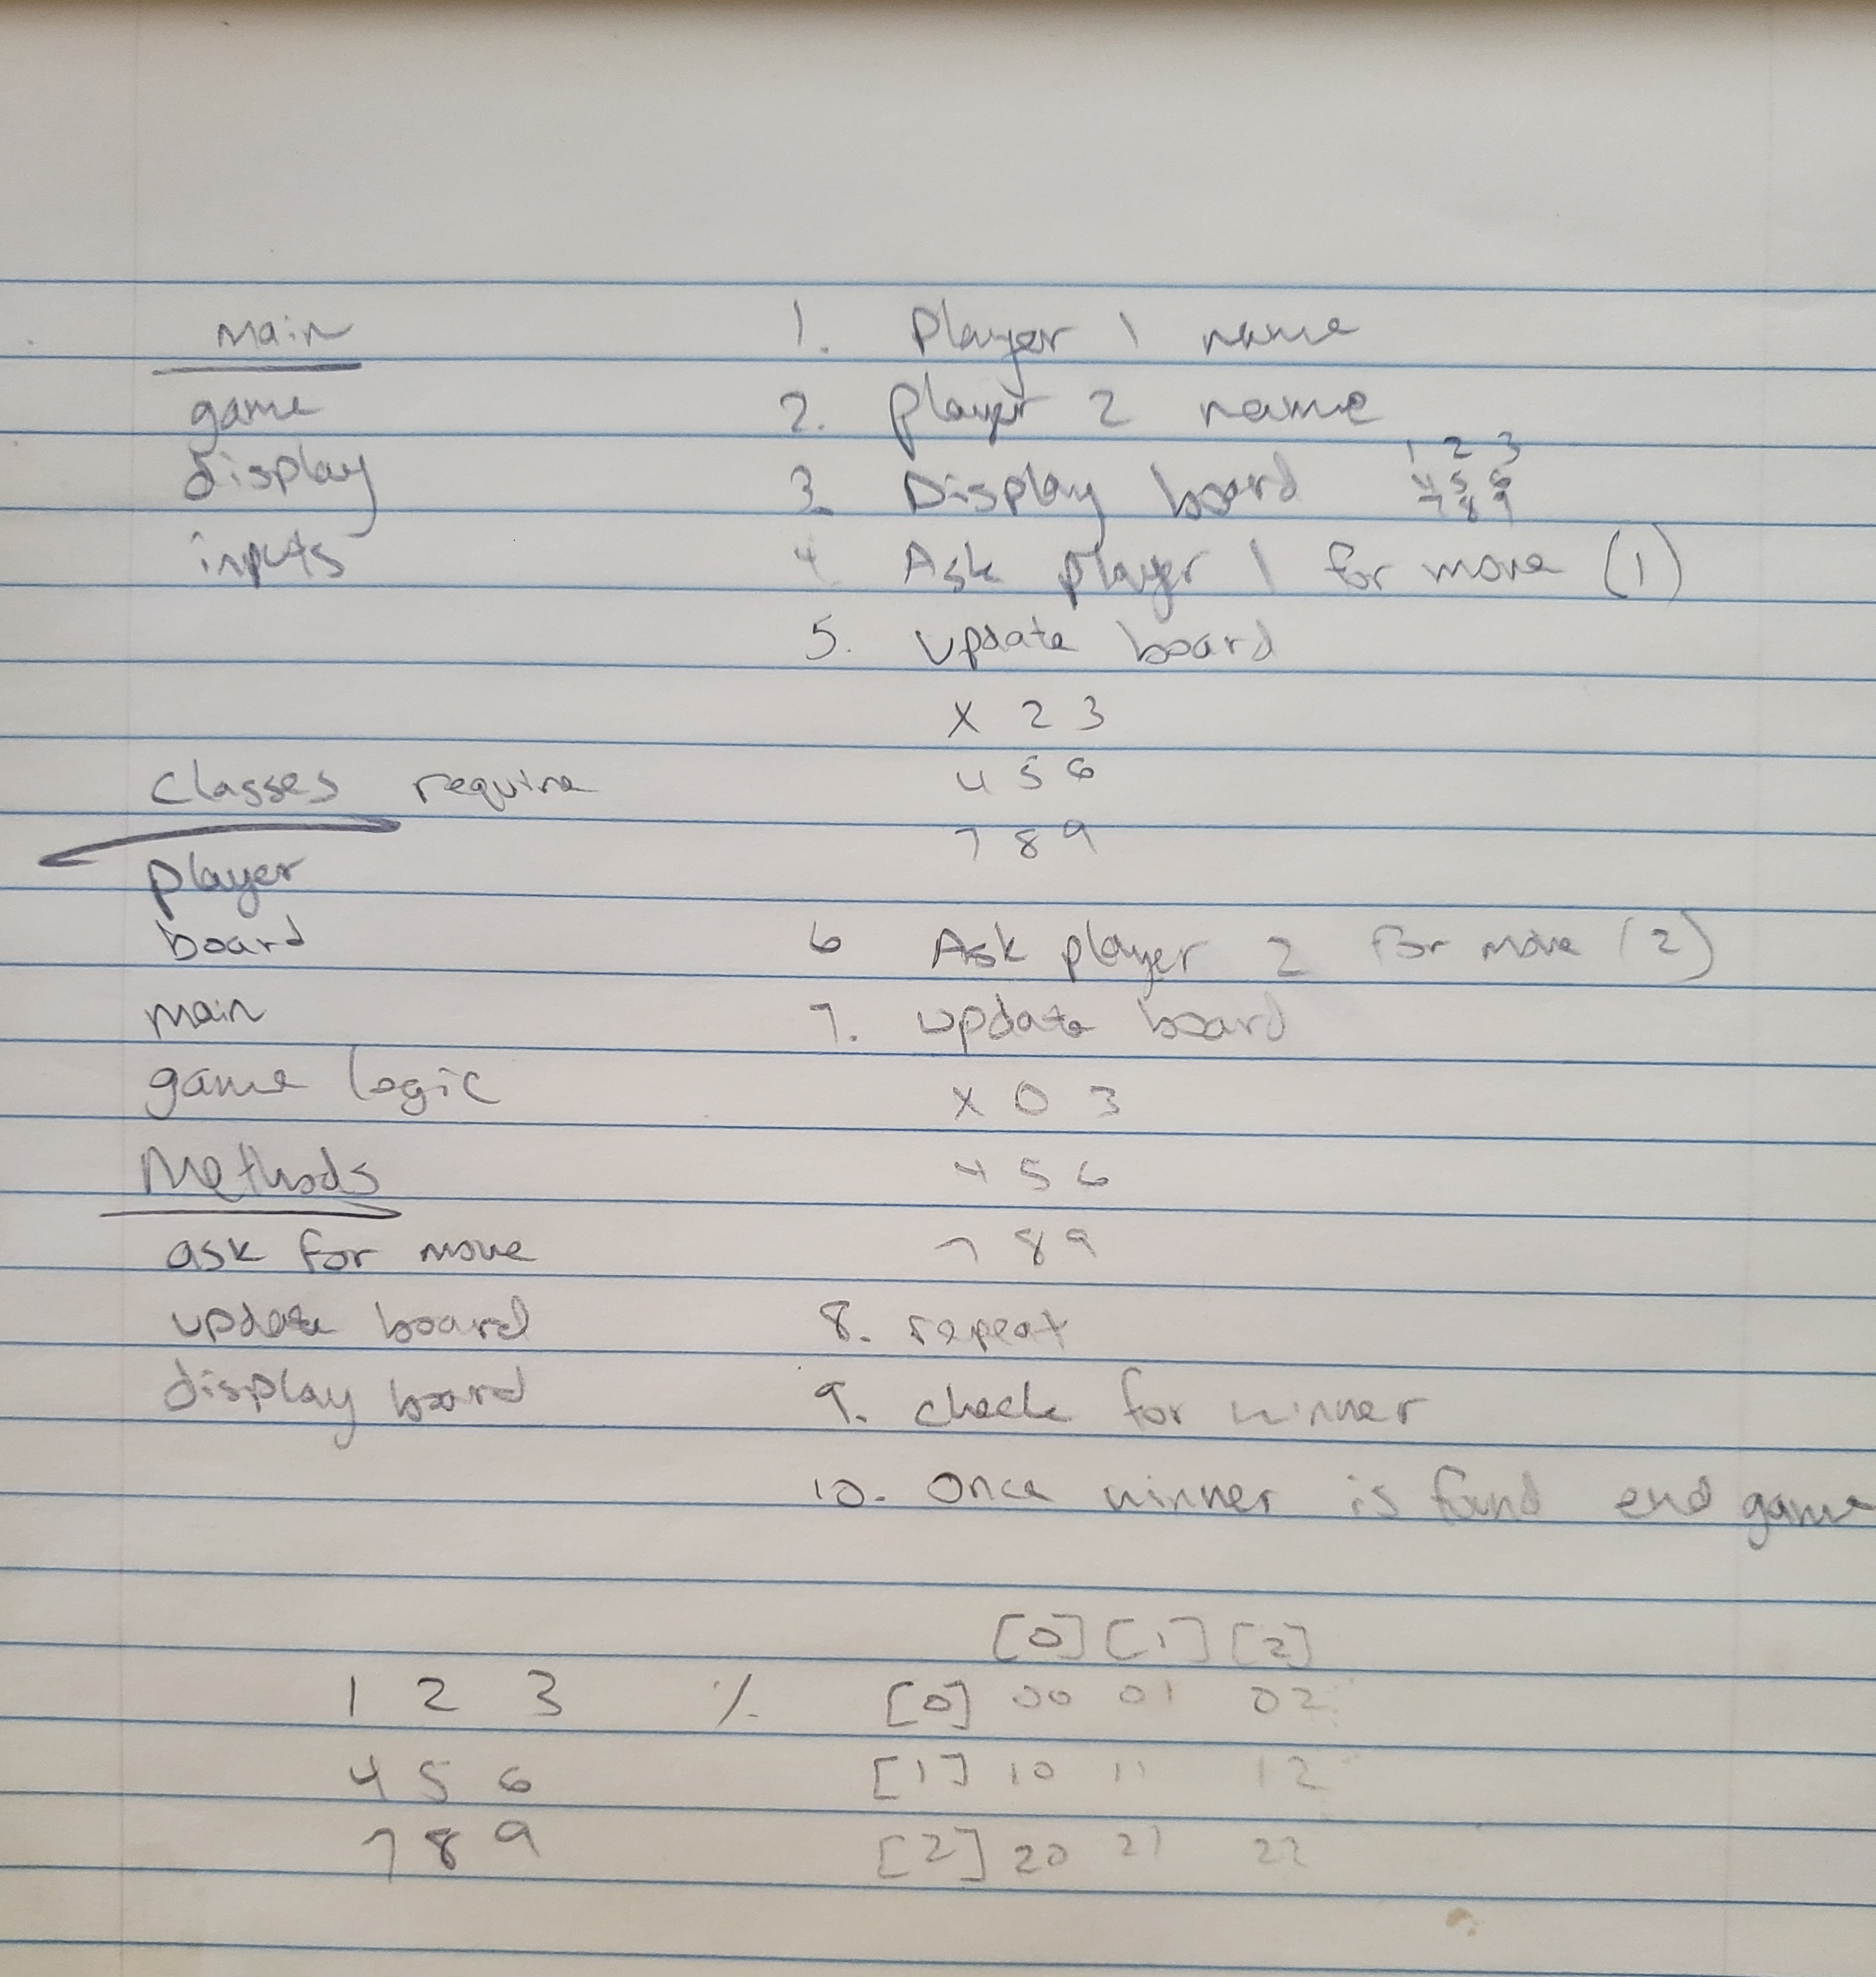 Main
game
display
inputs
Classes require
player
board
main
game logic
Methods
ask for move
update board
display board
1. Player 1 name
2. player 2 name
3. Display board
1 2 3
4 5 6
7 8 9
4 Ask player 1 for move (1)
5. update board
X 2 3
4 5 6
7 8 9
6 Ask player 2 for move (2)
7. update board
X O 3
4 5 6
7 8 9
8. repeat
9. check for winner
10. Once winner is found end game
1 2 3 %
4 5 6
7 8 9
[0] [1] [2]
[0] 00 01 02
[1] 10 11 12
[2] 20 21 22